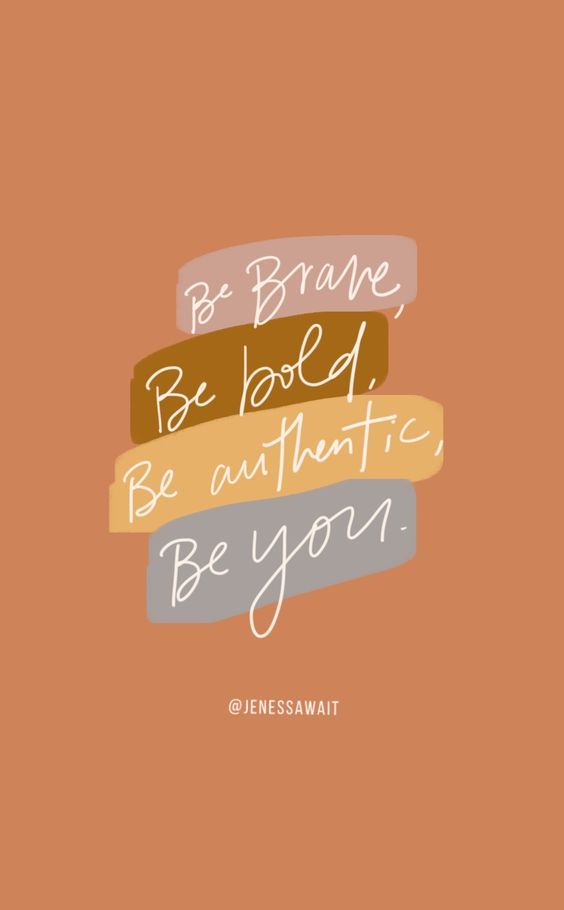 Be Brave,
Be bold,
Be authentic,
Be you.
@JENESSAWAIT